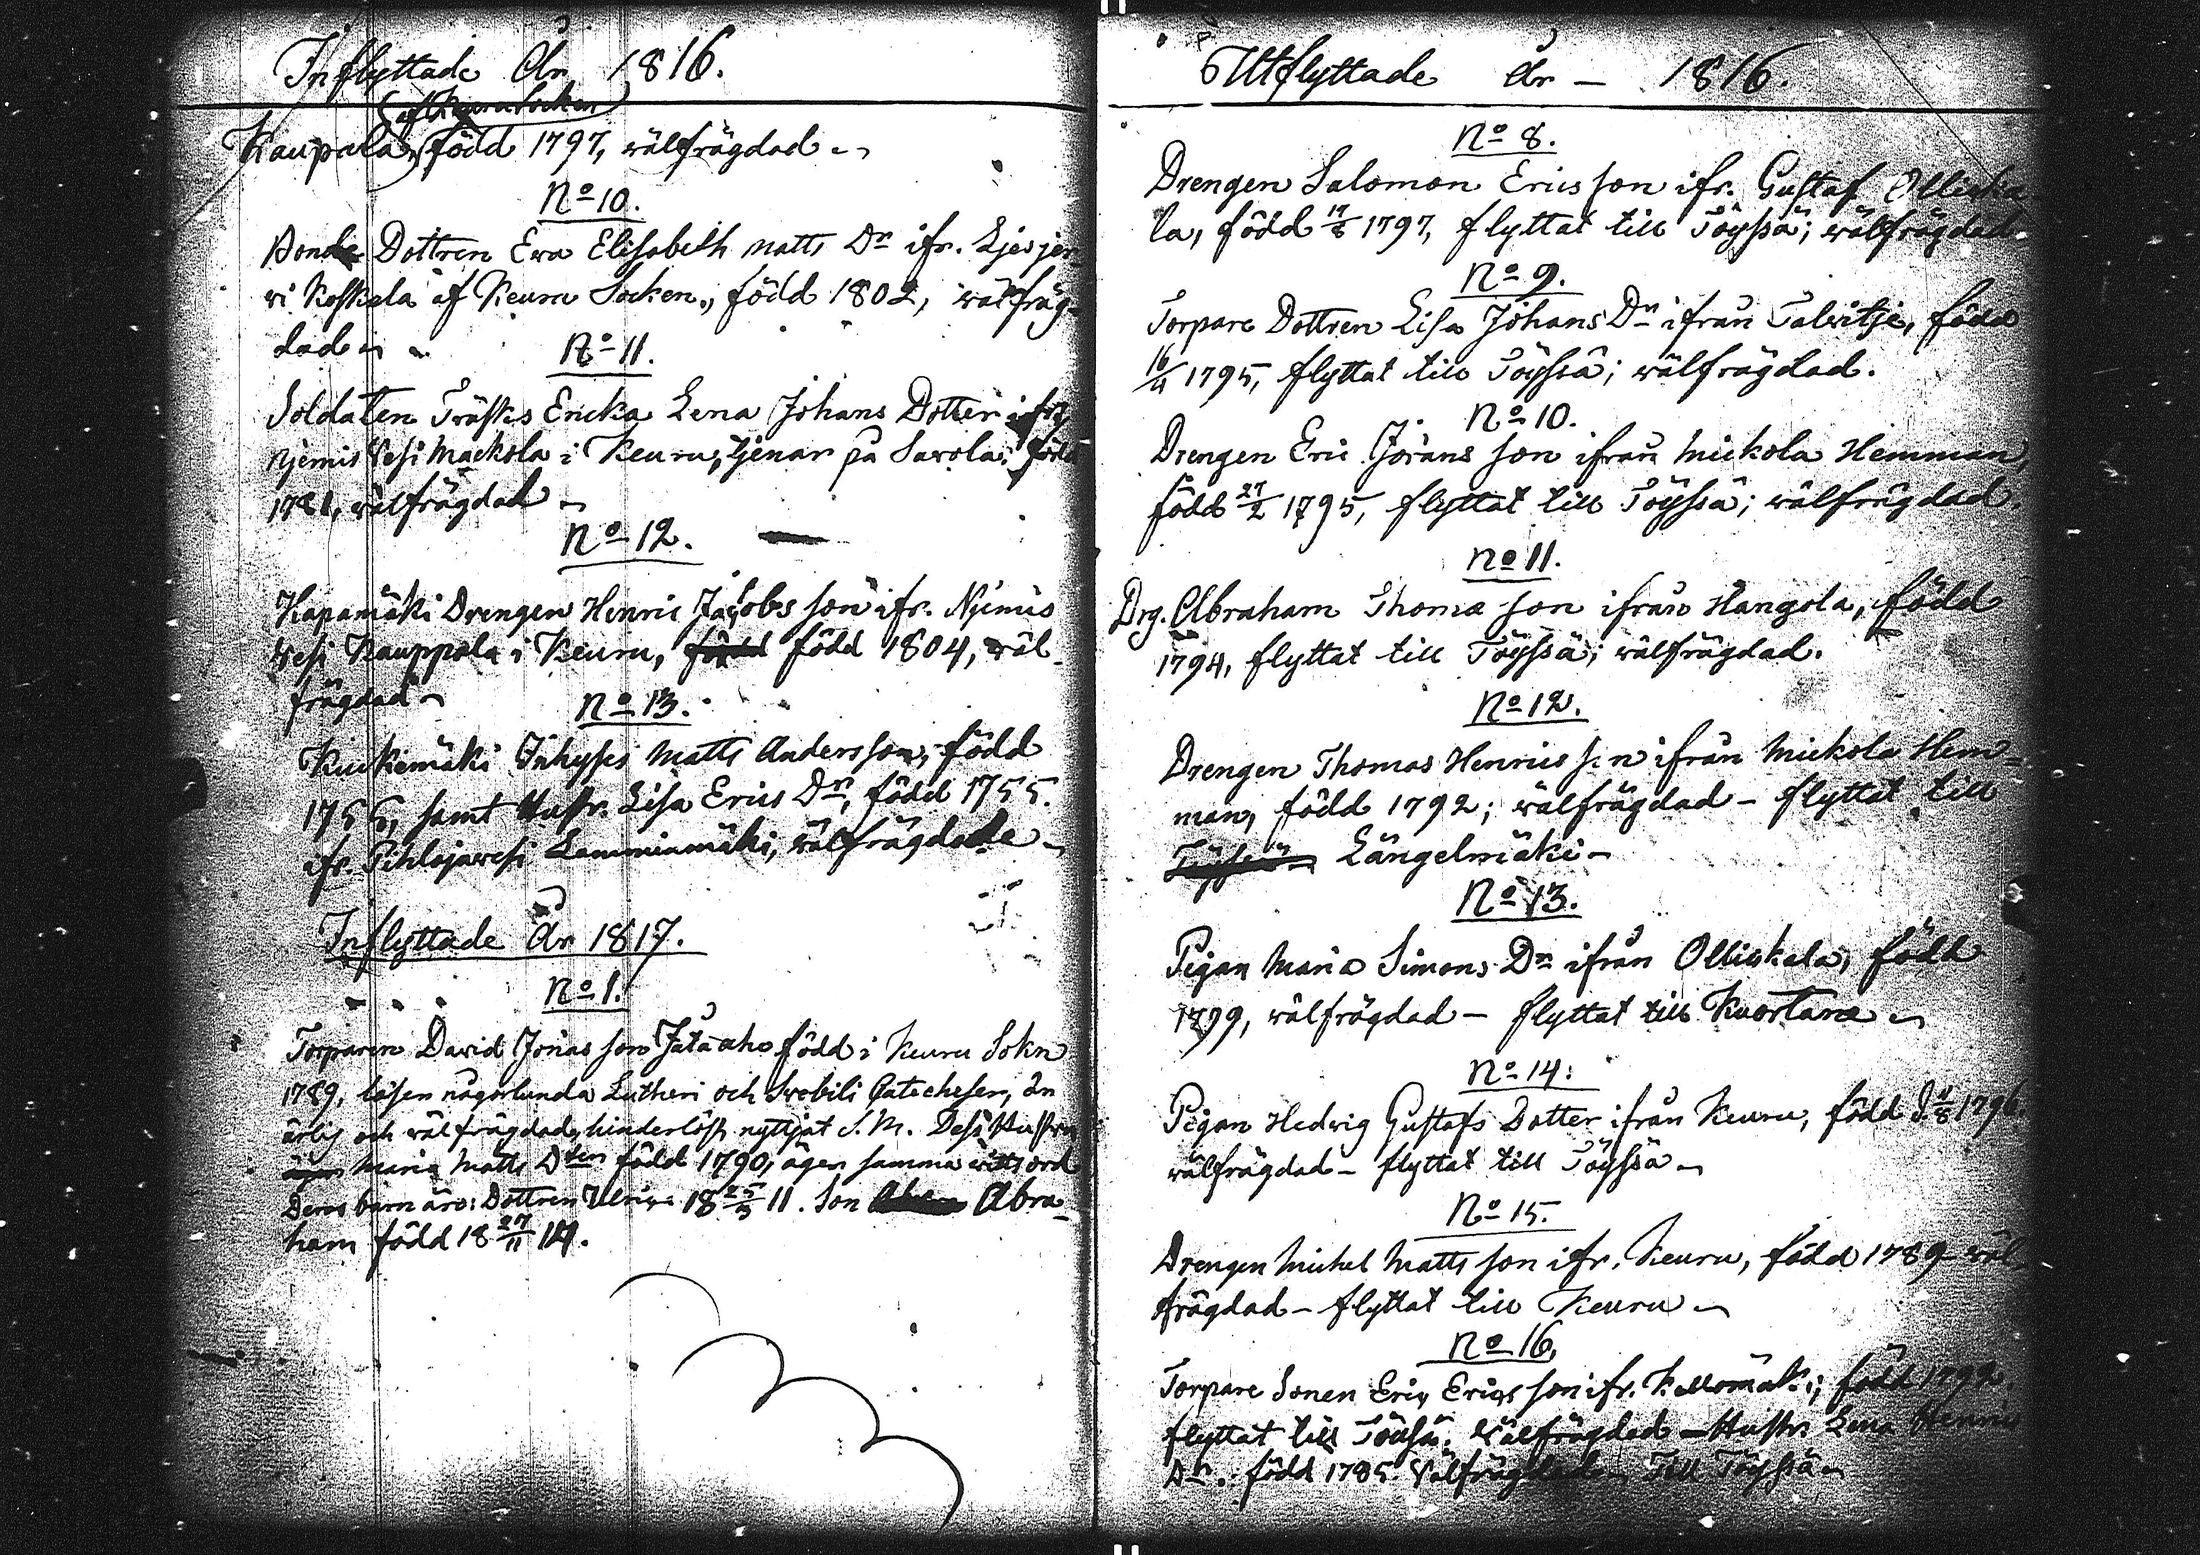 Inflyttade År 1816.
(af Keuru Socken)
Kaupala, född 1797, wälfrägdad
No 10.
Bonde Dottren Ewa Elisabeth Matts Dr ifr. Liesjer-
wi Koskela af Keuru Socken, född 1802, wälfräg-
dad
No 11.
Soldaten Träsks Ericka Lena Johans Dotter ifr.
Njemis Wesi Mackola i Keuru, tjenar på Sarola, född
1781, wälfrägdad
No 12.
Hapamäki Drengen Henric Jacobs son ifr. Njemis
Wesi Kauppala i Keuru, född född 1804, wäl-
frägdad
No 13.
Kuckemäki Inhyses Matts Andersson, född
1756, samt Hustr. Lisa Erics Dr, född 1755.
ifr. Pihlajawesi Lemminmäki, wälfrägdade
Inflyttade År 1817.
No 1.
Torparen David Jonas son född i Keuru Sokn
1789, läsen någorlunda Lutheri och Swebili Catechesen, än
ärlig och wälfrägdad, hinderlöst nyttjat S. M. Dess Hustru
Maria Matts Dtter född 1790, äger samma wittsord
Deras barn äro: Dottren Ulrica 18 25/3 11. Son Abra-
ham född 18 27/11 14.
Utflyttade År – 1816.
No 8.
Drengen Salomon Ericsson ifr. Gustaf Olliska-
la, född 17/8 1797, flyttat till Töyssä; wälfrägdad.
No 9.
Torpare Dottren Lisa Johans Dr ifrån Talwitje, född
16/4 1795, flyttat till Töyssä; wälfrägdad.
No 10.
Drengen Eric Jörans son ifrån Mickola Hemman,
född 27/2 1795, flyttat till Töyssä; wälfrägdad.
No 11.
Drg. Abraham Thomæ son ifrån Hangola, född
1794, flyttat till Töyssä; wälfrägdad.
No 12.
Drengen Thomas Henricsson ifrån Mickola Hem-
man, född 1792; wälfrägdad – flyttat till
Töyssä Längelmäki –
No 13.
Pigan Maria Simons Dr ifrån Olliskala, född
1799, wälfrägdad – flyttat till Kuortane
No 14.
Pigan Hedwig Gustafs Dotter ifrån Keuru, född d. 1/8 1796.
wälfrägdad – flyttat till Töyssä –
No 15.
Drengen Michel Matts son ifr. Keuru, född 1789 wäl-
frägdad – flyttat till Keuru –
No 16.
Torpare Sonen Eric Erics son ifr. född 1792
flyttat till Töyssä. Wälfrägdad – Hustr. Lena Henrics
Dr. född 1785. Wälfrägdade Till Töyssä –